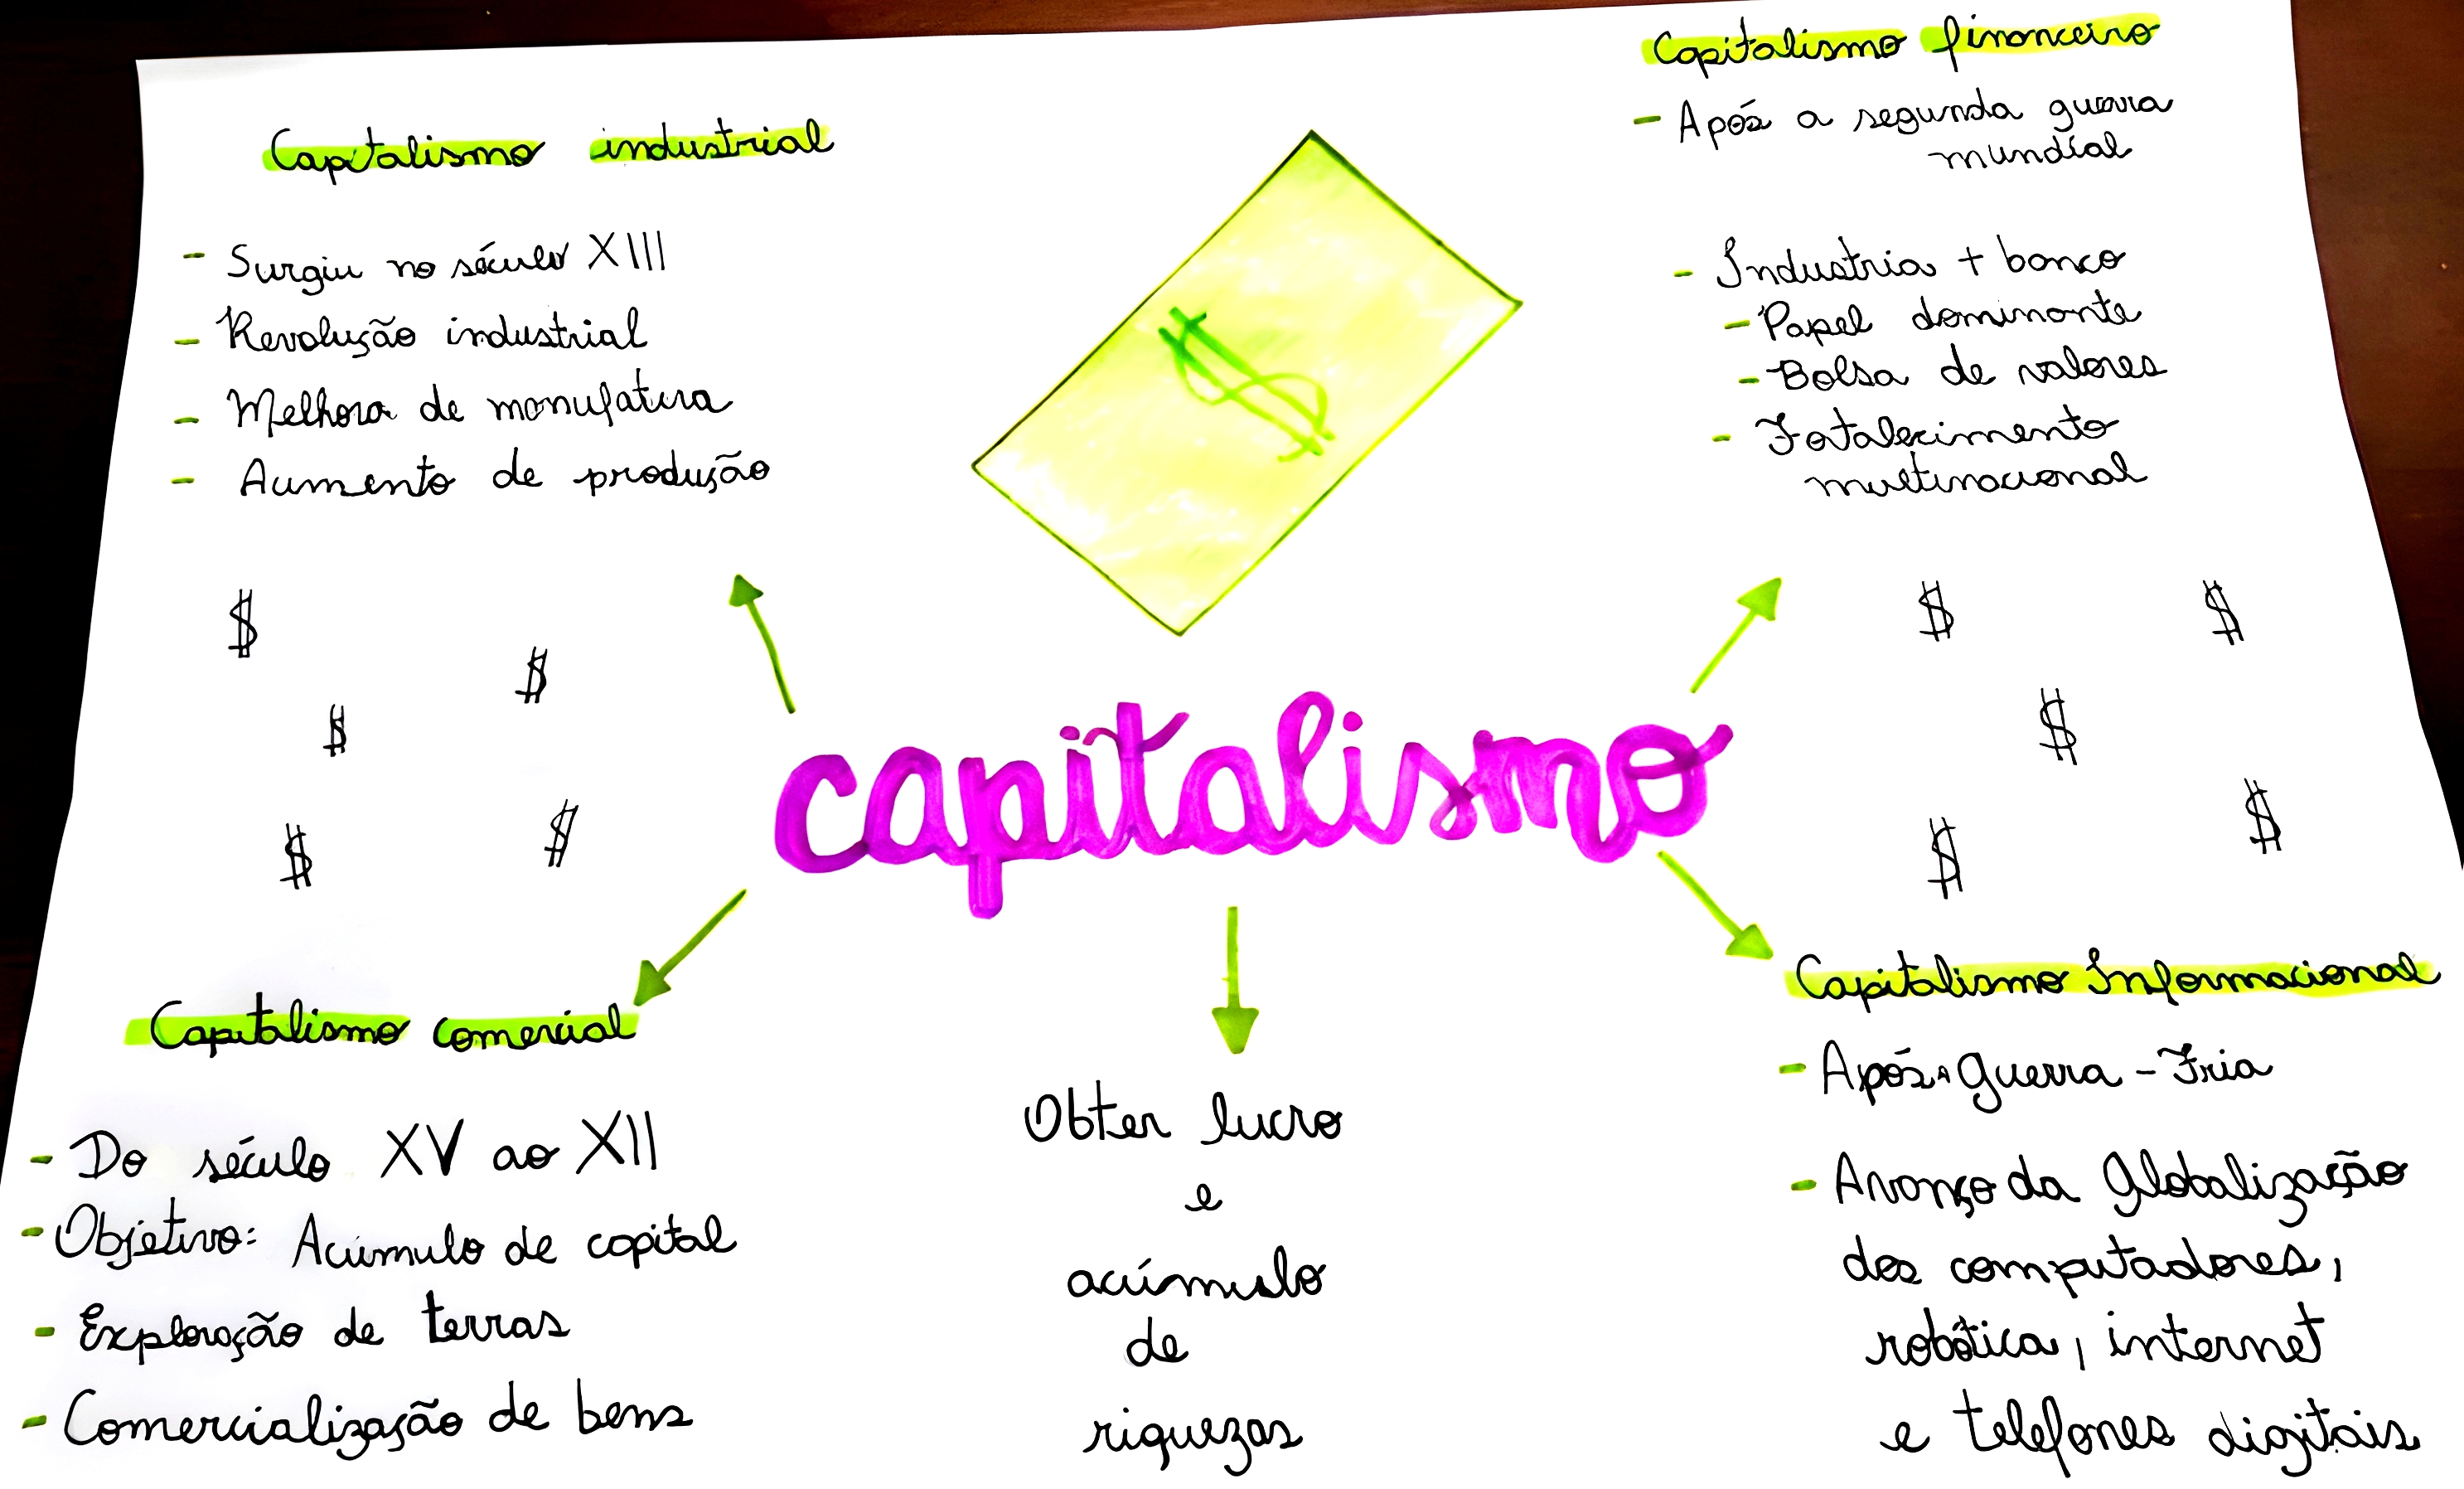 Capitalismo industrial
- Surgiu no século XIII
- Revolução industrial
- Melhora de manufatura
- Aumento de produção
Capitalismo financeiro
- Após a segunda guerra
mundial
- Industria + banco
- Papel dominante
- Bolsa de valores
- Fortalecimento
multinacional
$
$
$
$
$
$
$
$
$
$
$
capitalismo
Capitalismo comercial
- Do século XV ao XII
- Objetivo: Acúmulo de capital
- Exploração de terras
- Comercialização de bens
Obter lucro
e
acúmulo
de
riquezas
Capitalismo Informacional
- Após a Guerra - Fria
- Avanço da Globalização
dos computadores,
robótica, internet
e telefones digitais